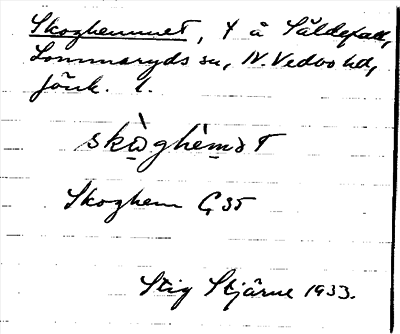 Skoghemmet, t å Säldefall,
Lommaryds sn, N. Vedbo hd,
Jönk. l.
skòghèmət
Skoghem G 35
Stig Stjärne 1933.